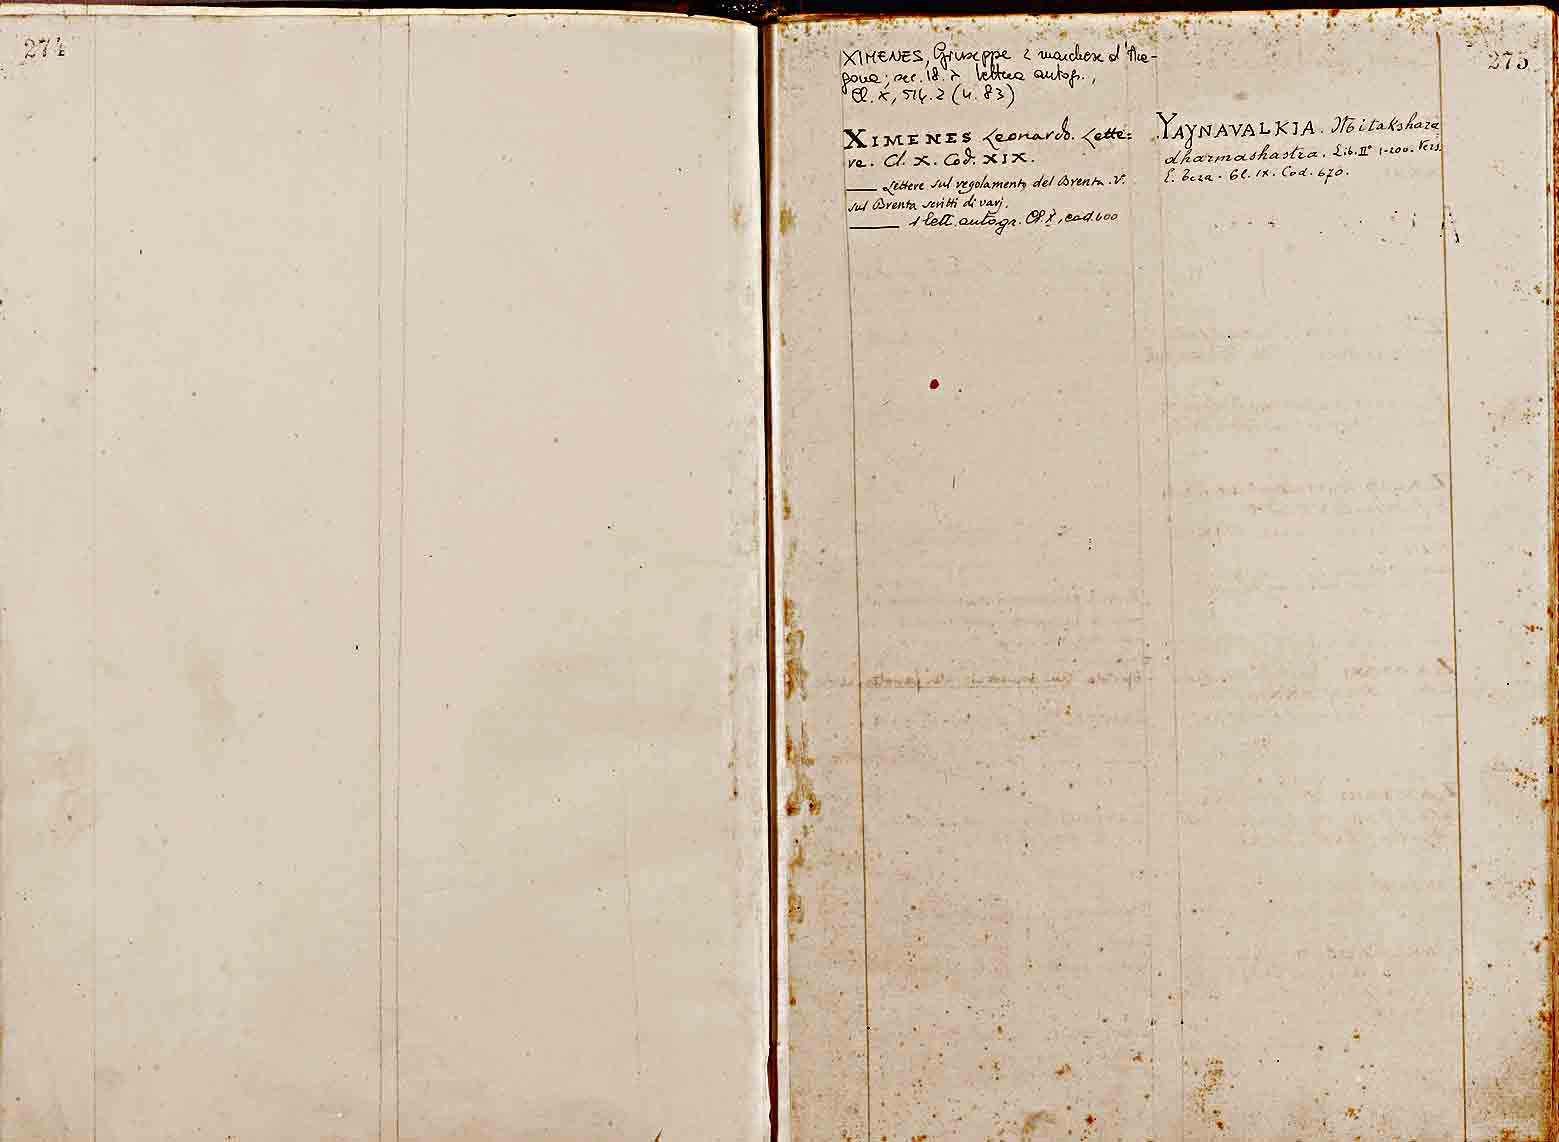 274
275
XIMENES, Giuseppe < marchese d'Ara-
gona; sec. 18. > lettera autogr.,
Cl. X, 514.2 (n. 83)
XIMENES Leonardo. Lette=
re. Cl. X. Cod. XIX.
____ Lettere sul regolamento del Brenta. V.
sul Brenta scritti di varj.
____ 1 lett. autogr. Cl. X, cod. 600
YAYNAVALKIA. Mitakshara
dharmashastra. Lib. II° 1-200. Vers.
E. Teza. Cl. IX. Cod. 670.